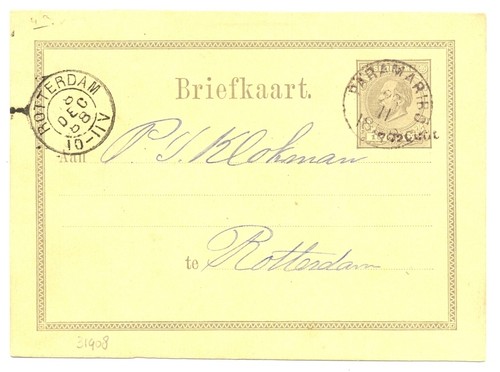 Briefkaart.
ROTTERDAM
6
DEC
88
10-11V
PARAMARIBO
11
Cent.
Aan P. J. Klohman
te Rotterdam
31908